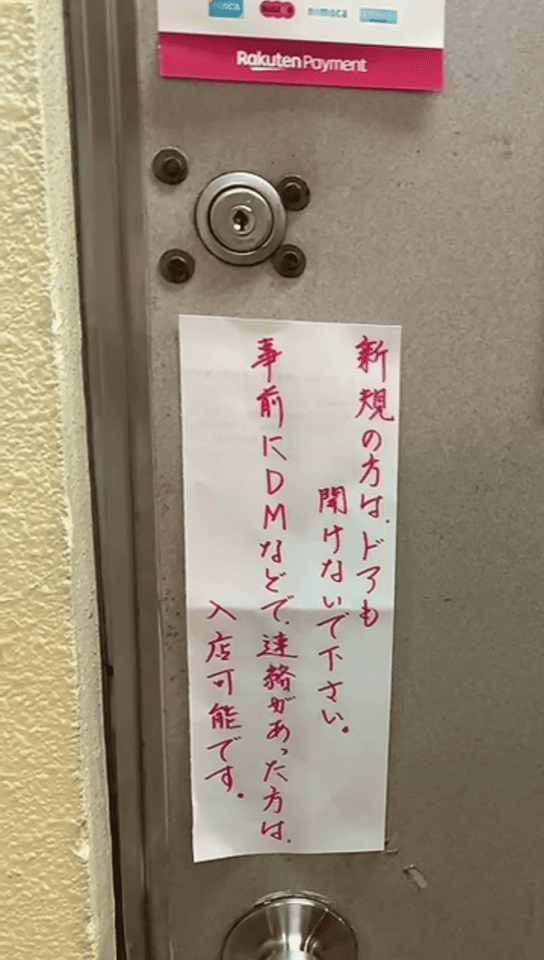 nimoca
Rakuten Payment
新規の方は、ドアも
開けないで下さい。
事前にDMなどで、連絡があった方は、
入店可能です。